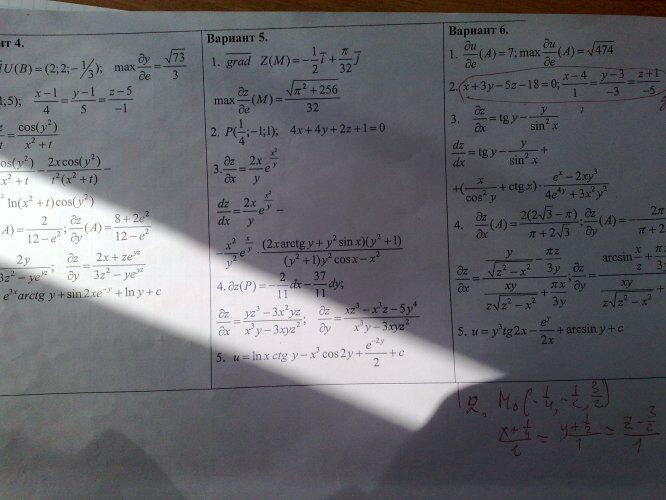 нт 4.
U(B) = (2;2;−1/3); max ∂y/∂e = √73/3
1;5); (x−1)/4 = (y−1)/5 = (z−5)/−1
cos(y²)/(x²+t)
cos(y²)/(x²+t) − 2x cos(y²)/(t²(x²+t)) −
ln(x²+t)cos(y²)
A) = 2/(12−e²); ∂z/∂y (A) = (8+2e²)/(12−e²)
2y/(3z²−ye^{yz}); ∂z/∂y = (2x+ze^{yz})/(3z²−ye^{yz})
e^{3x} arctg y + sin 2xe^{−y} + ln y + c
Вариант 5.
1. grad Z(M) = −1/2 i + π/32 j
max ∂z/∂e (M) = √(π²+256)/32
2. P(1/4;−1;1); 4x+4y+2z+1=0
3. ∂z/∂x = 2x/y e^{x²/y}
dz/dx = 2x/y e^{x²/y} −
−x²/y² e^{x/y} · (2x arctg y + y² sin x)(y²+1)/((y²+1)y² cos x − x²)
4. ∂z(P) = −2/11 dx − 37/11 dy;
∂z/∂x = (yz³−3x²yz)/(x³y−3xyz²); ∂z/∂y = (xz³−x³z−5y⁴)/(x³y−3xyz²)
5. u = ln x ctg y − x³ cos 2y + e^{−2y}/2 + c
Вариант 6.
1. ∂u/∂e (A) = 7; max ∂u/∂e (A) = √474
2. x+3y−5z−18=0; (x−4)/1 = (y−3)/−3 = (z+1)/−5
3. ∂z/∂x = tg y − y/sin²x
dz/dx = tg y − y/sin²x +
+(x/cos²y + ctg x) · (e^x − 2xy³)/(4e^{4y} + 3x²y²)
4. ∂z/∂x (A) = 2(2√3−π)/(π+2√3); ∂z/∂y (A) = −2π/(π+2
∂z/∂x = (y/√(z²−x²) − πz/3y)/(xy/(z√(z²−x²)) + πx/3y); ∂z/∂y = (arcsin x/z + πx/3)/(xy/(z√(z²−x²)) +
5. u = y³ tg 2x − e^y/2x + arcsin y + c
2. M₀(−1/4, −1/2, 3/2)
(x+1/4)/2 = (y+1/2)/1 = (z−3/2)/1